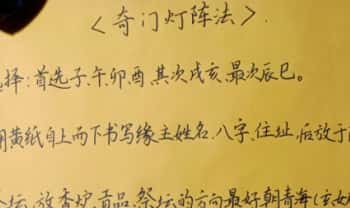 <奇门灯阵法>.
择:首选子、午、卯、酉,其次戌亥,最次辰巳。
用黄纸自上而下书写缘主姓名、八字、住址,后放于
坛,放香炉、贡品,祭坛的方向最好朝青海(玄女